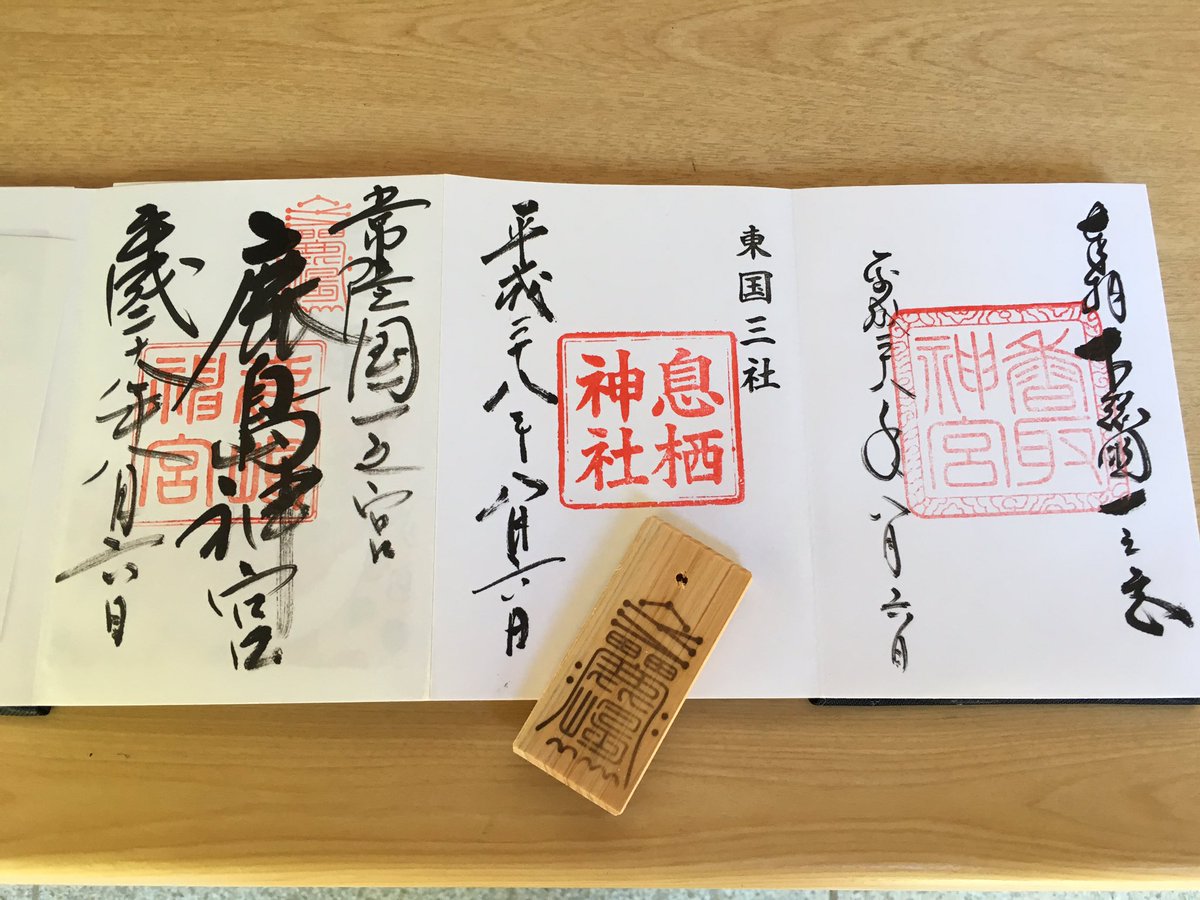 奉拝 下総国一之宮
香取
神宮
平成二十八年八月六日
東国三社
息栖
神社
平成二十八年八月六日
常陸国一之宮
鹿島神宮
神宮
平成二十八年八月六日